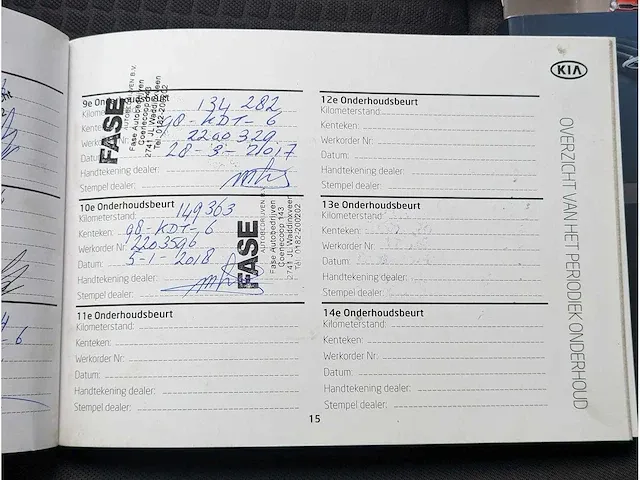 KIA
OVERZICHT VAN HET PERIODIEK ONDERHOUD
9e Onderhoudsbeurt
134 282
Kenteken: 98-KDT-6
Werkorder Nr: 2200329
Datum: 28-3-2017
Handtekening dealer:
Stempel dealer:
FASE
AUTOBEDRIJVEN B.V.
Fase Autobedrijven
Coenecoop 143
2741 JL Waddinxveen
Tel. 0182-200202
10e Onderhoudsbeurt
Kilometerstand: 149363
Kenteken: 98-KDT-6
Werkorder Nr: 2203596
Datum: 5-1-2018
Handtekening dealer:
Stempel dealer:
FASE
AUTOBEDRIJVEN B.V.
Fase Autobedrijven
Coenecoop 143
2741 JL Waddinxveen
Tel. 0182-200202
11e Onderhoudsbeurt
Kilometerstand:
Kenteken:
Werkorder Nr:
Datum:
Handtekening dealer:
Stempel dealer:
12e Onderhoudsbeurt
Kilometerstand:
Kenteken:
Werkorder Nr:
Datum:
Handtekening dealer:
Stempel dealer:
13e Onderhoudsbeurt
Kilometerstand:
Kenteken:
Werkorder Nr:
Datum:
Handtekening dealer:
Stempel dealer:
14e Onderhoudsbeurt
Kilometerstand:
Kenteken:
Werkorder Nr:
Datum:
Handtekening dealer:
Stempel dealer:
15